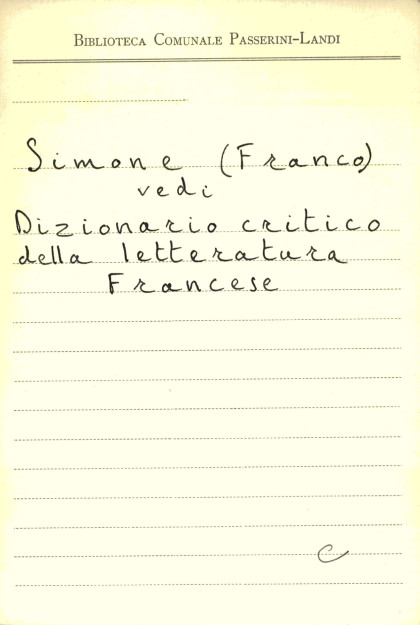 BIBLIOTECA COMUNALE PASSERINI-LANDI
Simone (Franco)
vedi
Dizionario critico
della letteratura
Francese
C